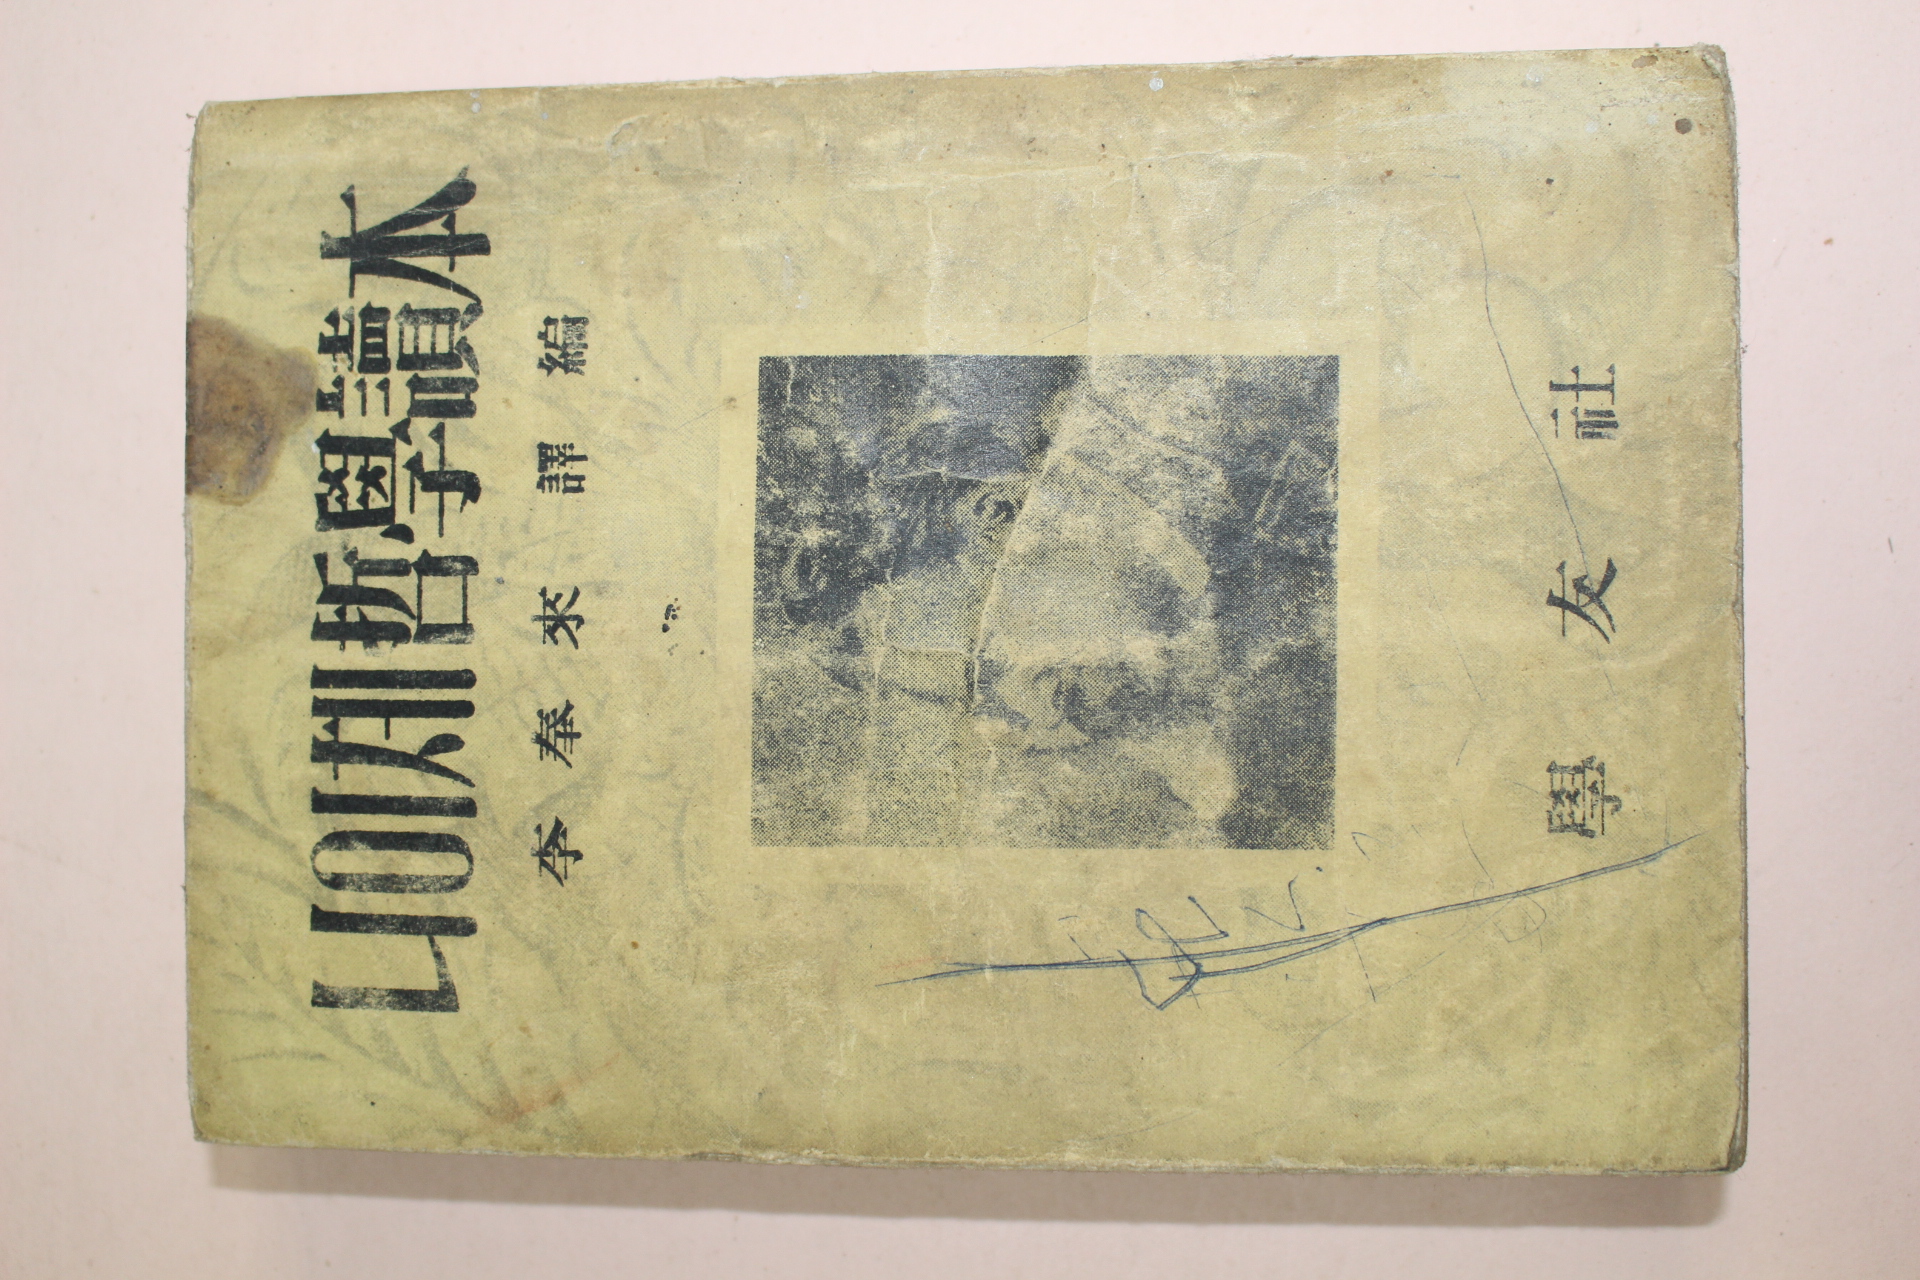 니이체哲學讀本
李奉來譯編
學友社